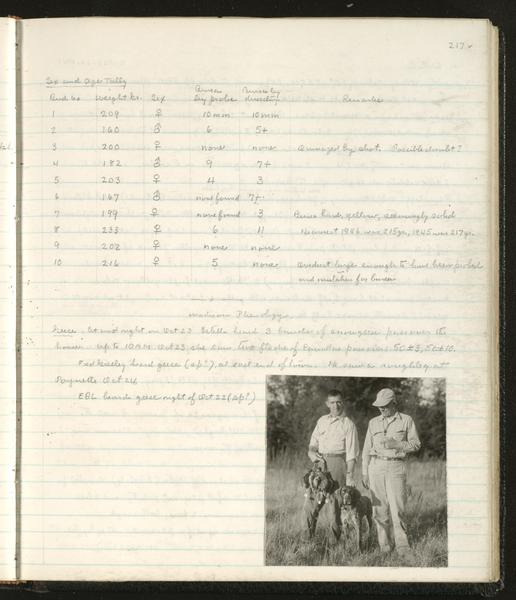 217
Sex and Age Tally
Bird No. Weight Gr. Sex Bursa by probe Bursa by dissection Remarks
1 209 ♀ 10 mm 10 mm
2 160 ♂ 6 5+
3 200 ♀ none none Damaged by shot. Possible doubt?
4 182 ♂ 9 7+
5 203 ♀ 4 3
6 167 ♂ none found 7+
7 199 ♀ none found 3 Bursa hard, yellow, seemingly solid
8 233 ♀ 6 11 Heaviest 1946 was 215gr, 1945 was 217gr.
9 202 ♀ none none
10 216 ♀ 5 none Oviduct large enough to have been probed
and mistaken for bursa
Madison Phenology
Geese. At midnight on Oct 23 Estella heard 3 bunches of geese pass over the
house. Up to 10AM Oct 23 she saw two flocks of
heard geese (sp?), at east end of town. He saw a at
Poynette Oct 24
EBL heard geese night of Oct 22 (sp?)